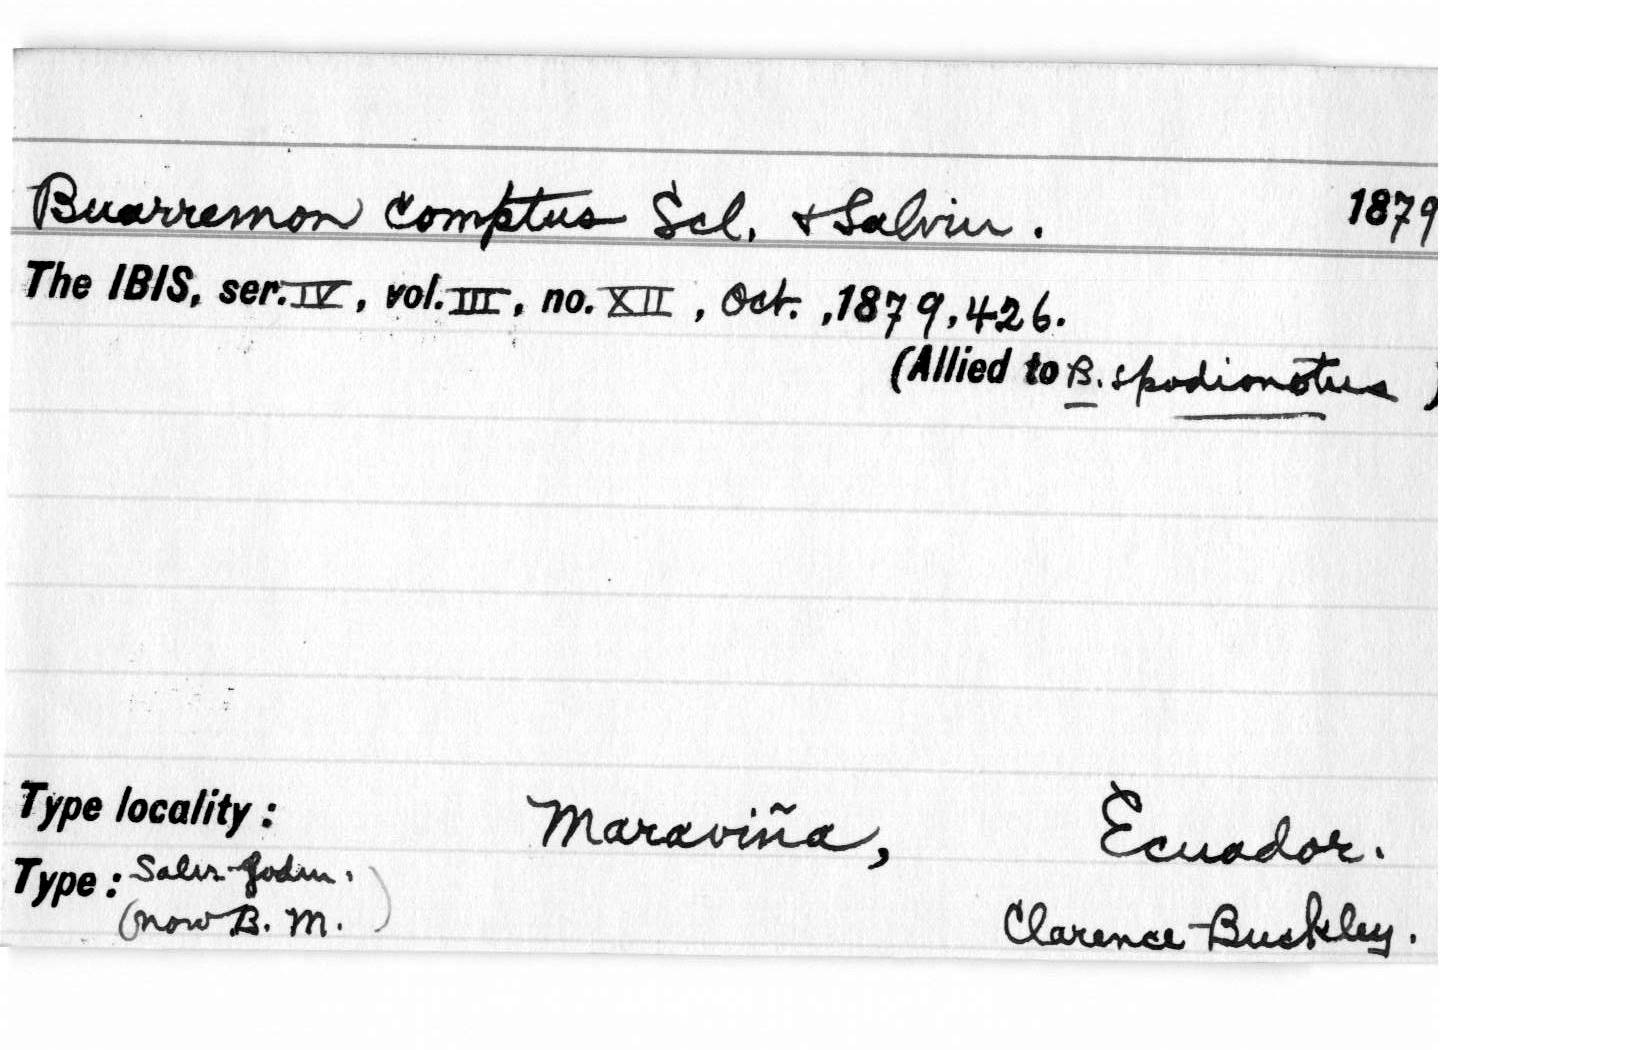 Buarremon comptus Scl. & Salvin. 1879
The IBIS, ser. IV, vol. III, no. XII, Oct. ,1879, 426.
(Allied to B. spodionotus )
Type locality: Maraviña, Ecuador.
Type: Salv.-Godm.
(now B. M. ) Clarence Buckley.